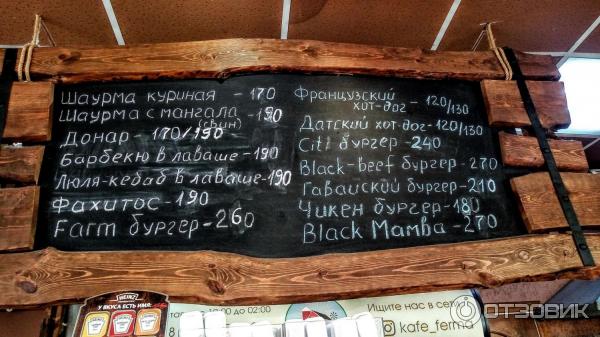 Шаурма куриная - 170
Шаурма с мангала - 190
(свин)
Донар - 170/190
Барбекю в лаваше - 190
Люля-кебаб в лаваше - 190
Фахитос - 190
Farm бургер - 260
Французский
хот-дог - 120/130
Датский хот-дог - 120/130
Citi бургер - 240
Black-beef бургер - 270
Гавайский бургер - 210
Чикен бургер - 180
Black Mamba - 270
HEINZ
У ВКУСА ЕСТЬ ИМЯ:
до 02:00
Ищите нас в
kafe_ferma
ОТЗОВИК